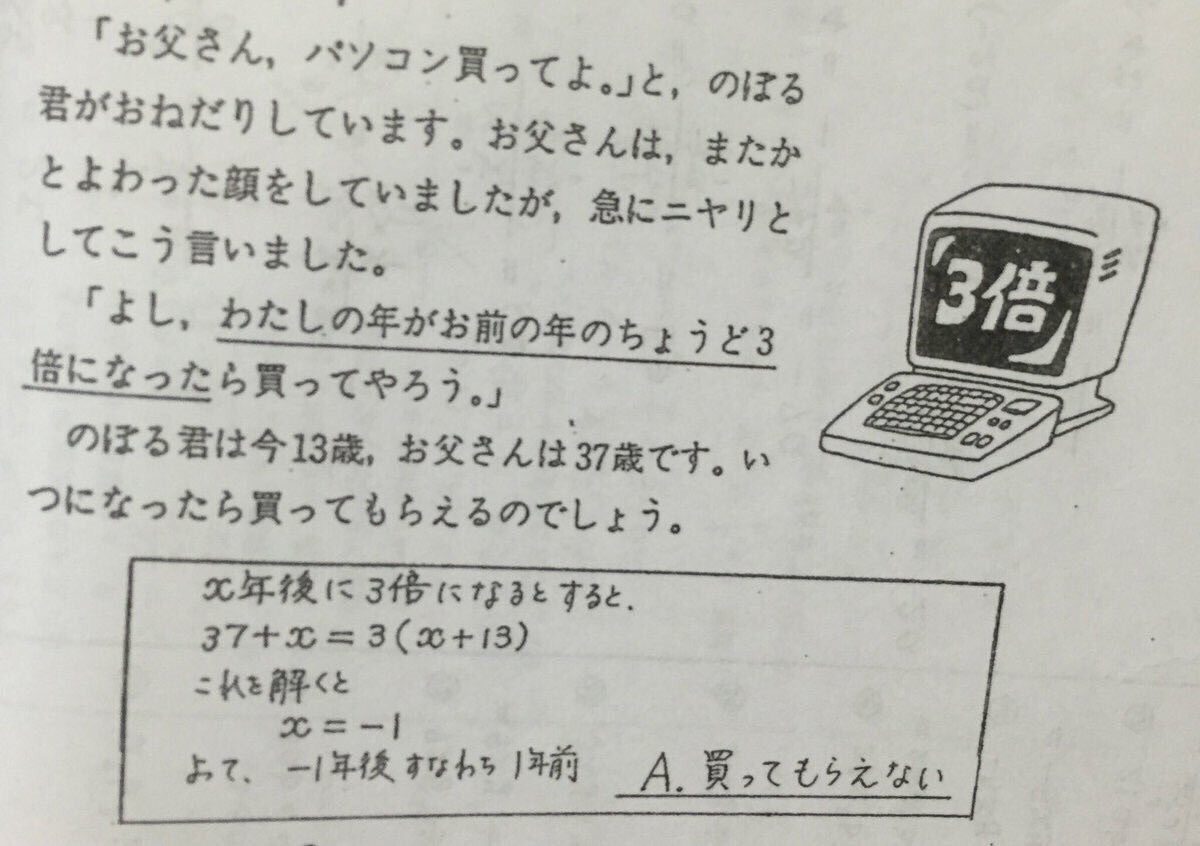 「お父さん，パソコン買ってよ。」と，のぼる
君がおねだりしています。お父さんは，またか
とよわった顔をしていましたが，急にニヤリと
してこう言いました。
「よし，わたしの年がお前の年のちょうど3
倍になったら買ってやろう。」
のぼる君は今13歳，お父さんは37歳です。い
つになったら買ってもらえるのでしょう。
「3倍」
x年後に3倍になるとすると．
37+x=3(x+13)
これを解くと
x=-1
よって、-1年後すなわち1年前
A.買ってもらえない